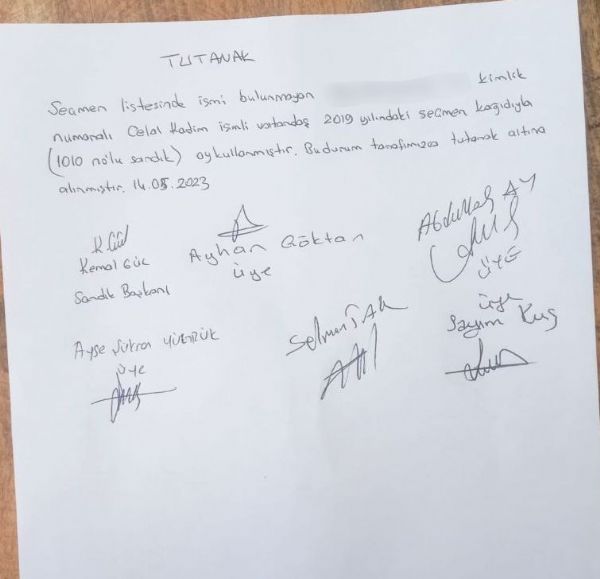 TUTANAK
Seçmen listesinde ismi bulunmayan kimlik
numaralı Celal Kadim isimli vatandaş 2019 yılındaki seçmen kağıdıyla
(1010 no'lu sandık) oy kullanmıştır. Bu durum tarafımızca tutanak altına
alınmıştır. 14.05.2023
Kemal Güç
Sandık Başkanı
Ayhan Göktan
üye
Abdullah AY
ÜYE
Ayşe
üye
Selman
üye
Kuş